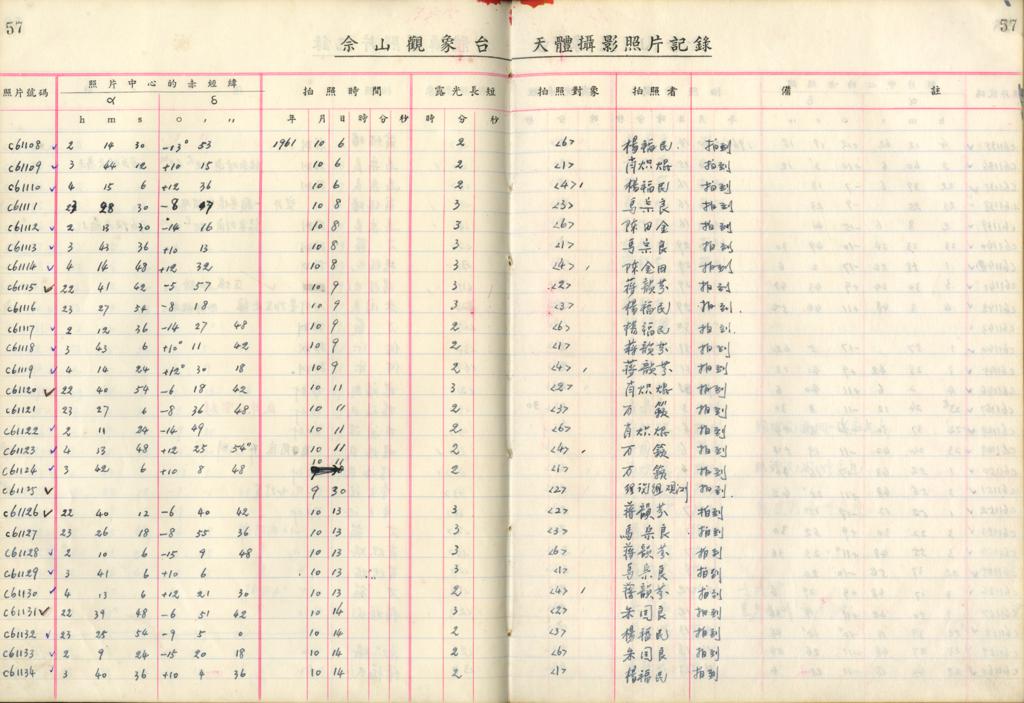 57 57
佘山觀象台 天體攝影照片記錄
照片號碼 照片中心的赤短緯 拍照時間 露光長短 拍照對象 拍照者 備 註
α δ
h m s ° ′ ″ 年 月 日 時 分 秒 時 分 秒
c61108 2 14 30 -13° 53 1961 10 6 2 <6> 楊福民 拍到
c61109 3 44 12 +10 15 10 6 2 <1> 拍到
c61110 4 15 6 +12 36 10 6 2 <4> 楊福民 拍到
c61111 23 28 30 -8 10 8 3 <3> 拍到
c61112 2 13 30 -14 16 10 8 3 <6> 拍到
c61113 3 43 36 +10 13 10 8 3 <1> 拍到
c61114 4 14 48 +12 32 10 8 3 <4> 拍到
c61115 22 41 42 -5 57 10 9 3 <2> 蔣韻芬 拍到
c61116 23 27 54 -8 18 10 9 3 <3> 楊福民 拍到
c61117 2 12 36 -14 27 48 10 9 2 <6> 楊福民 拍到
c61118 3 43 6 +10° 11 42 10 9 2 <1> 蔣韻芬 拍到
c61119 4 14 24 +12° 30 18 10 9 2 <4> 蔣韻芬 拍到
c61120 22 40 54 -6 18 42 10 11 3 <2> 拍到
c61121 23 27 6 -8 36 48 10 11 2 <3> 万 籟 拍到
c61122 2 11 24 -14 49 10 11 2 <6> 拍到
c61123 4 13 48 +12 25 54" 10 11 2 <4> 万 籟 拍到
c61124 3 42 6 +10 8 48 10 11 2 <1> 万 籟 拍到
c61125 9 30 <2> 拍到
c61126 22 40 12 -6 40 42 10 13 3 <2> 蔣韻芬 拍到
c61127 23 26 18 -8 55 36 10 13 3 <3> 拍到
c61128 2 10 6 -15 9 48 10 13 3 <6> 蔣韻芬 拍到
c61129 3 41 6 +10 6 10 13 3 <1> 拍到
c61130 4 13 6 +12 21 30 10 13 2 <4> 蔣韻芬 拍到
c61131 22 39 48 -6 51 42 10 14 3 <2> 拍到
c61132 23 25 54 -9 5 0 10 14 2 <3> 楊福民 拍到
c61133 2 9 24 -15 20 18 10 14 2 <6> 拍到
c61134 3 40 36 +10 4 36 10 14 2 <1> 楊福民 拍到